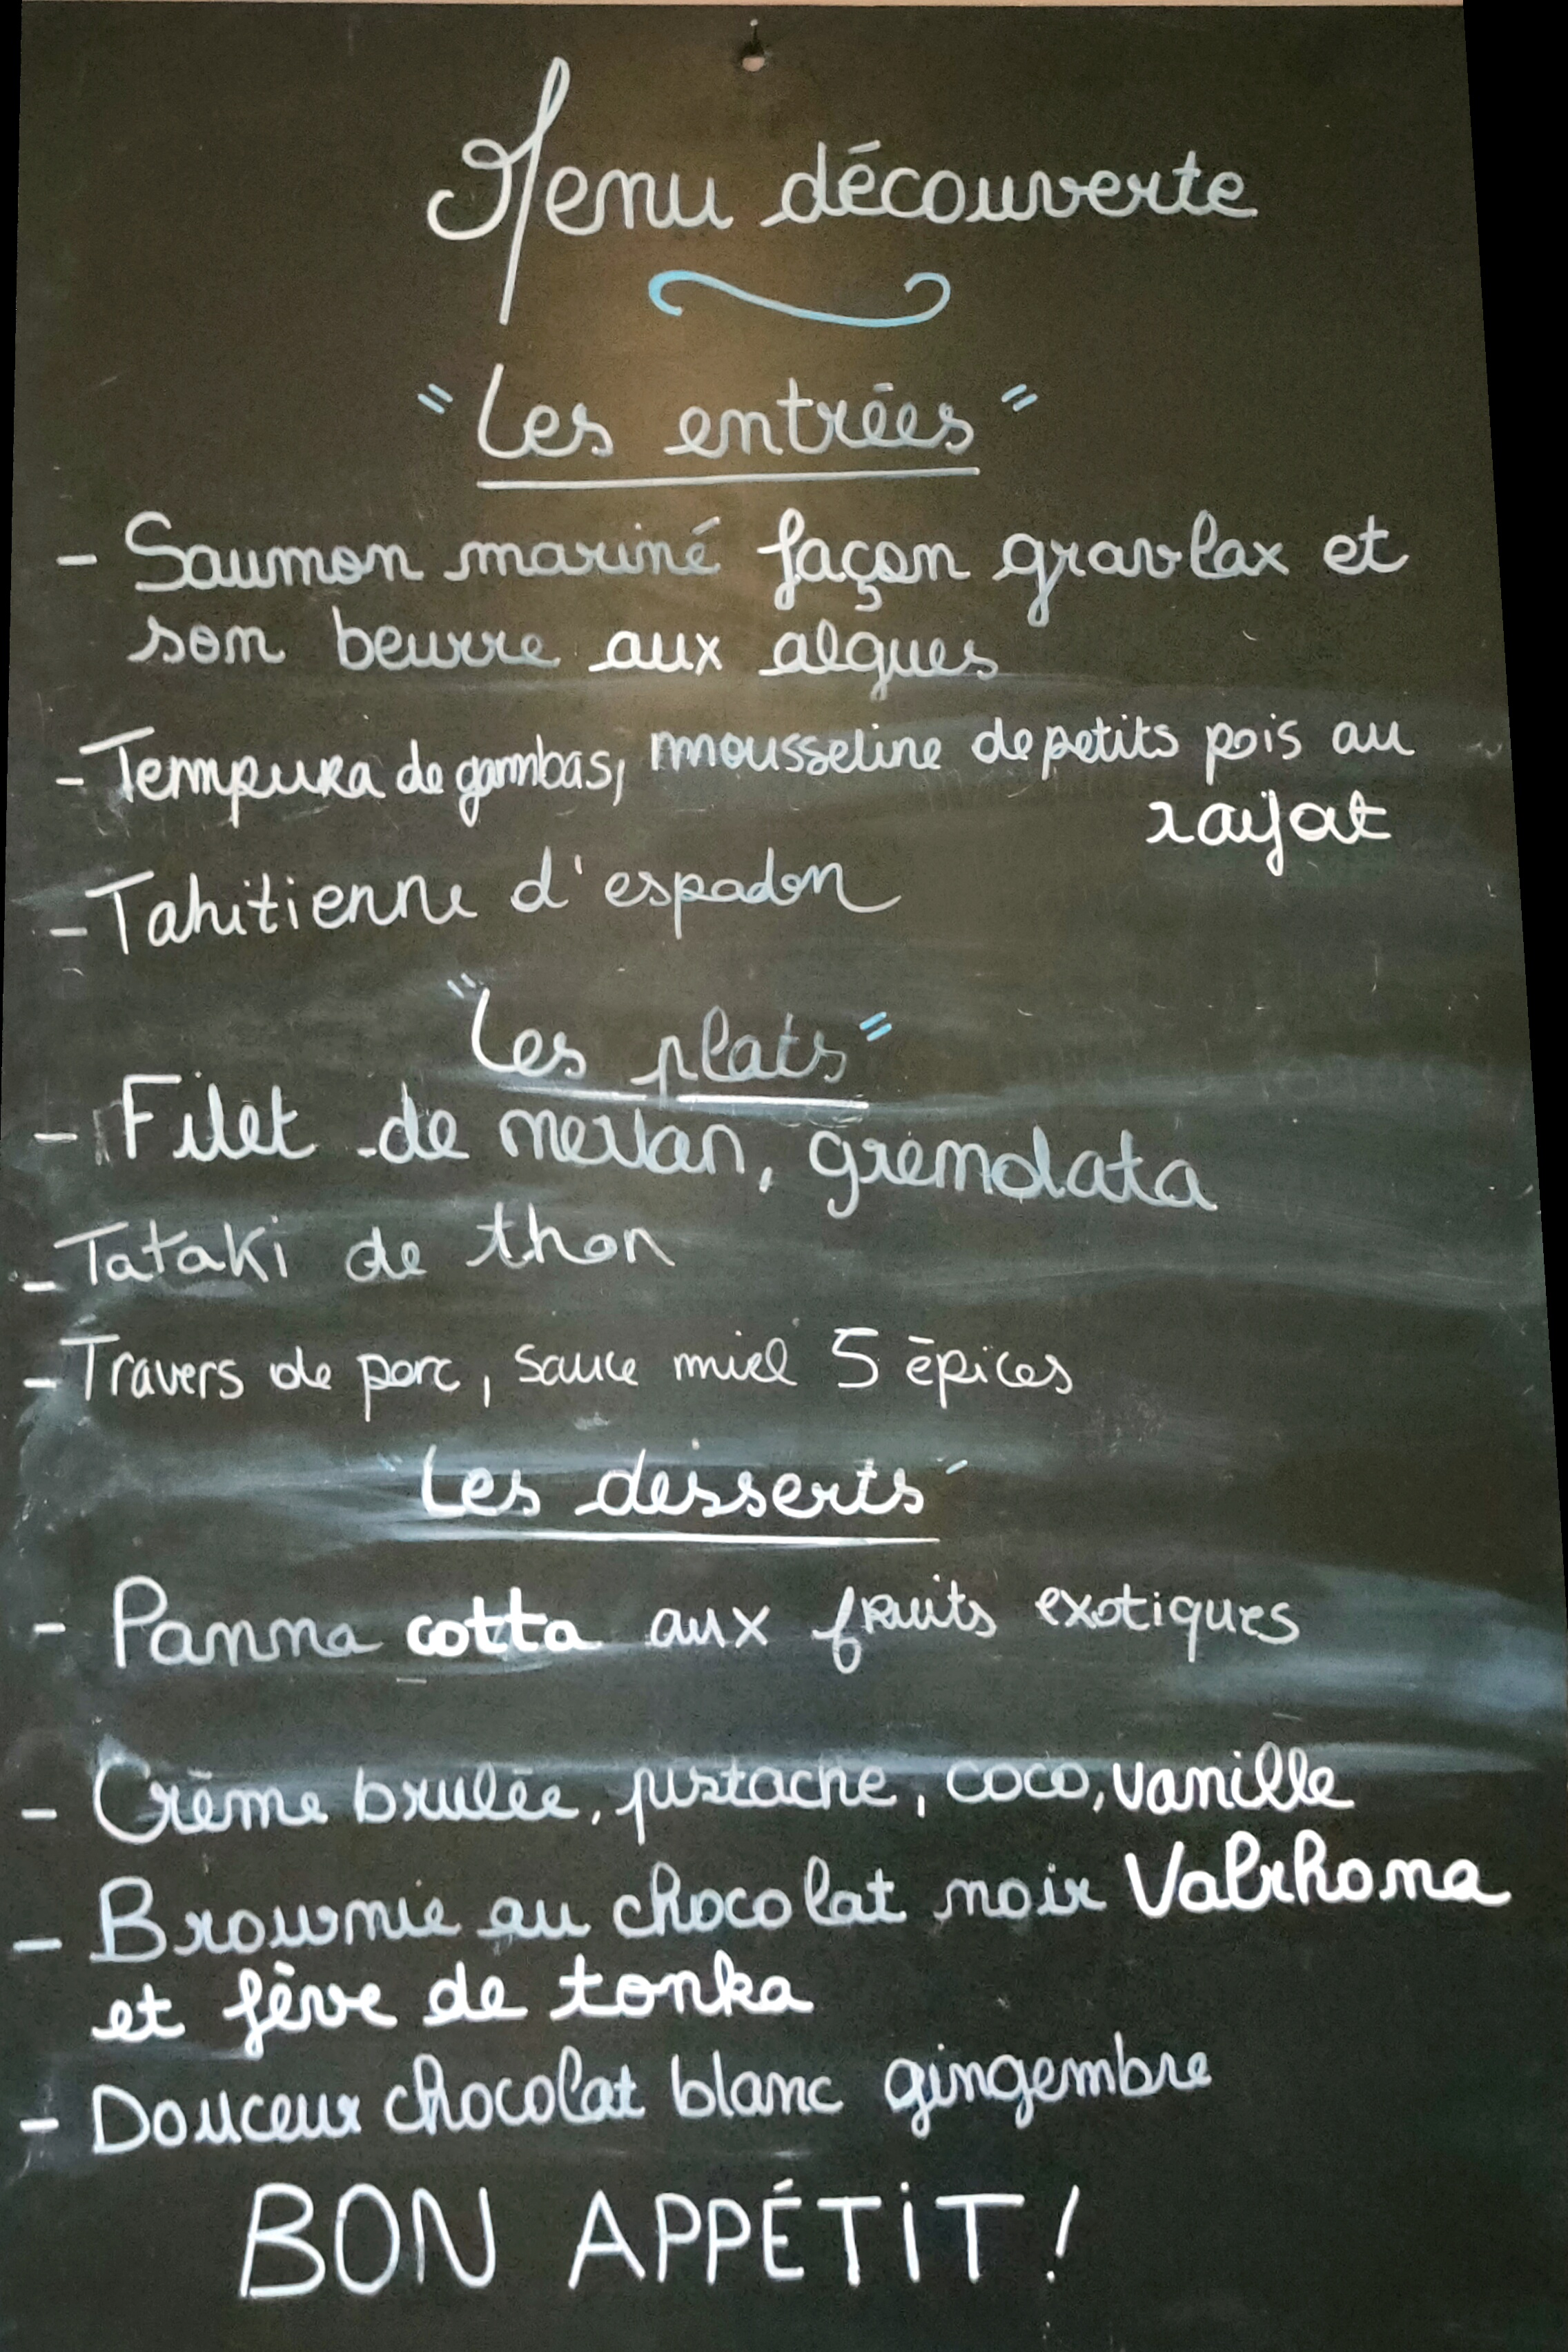 Menu découverte
"Les entrées"
- Saumon mariné façon gravlax et
son beurre aux algues
- Tempura de gambas, mousseline de petits pois au
rayat
- Tahitienne d'espadon
"Les plats"
- Filet de merlan, gremolata
- Tataki de thon
- Travers de porc, sauce miel 5 épices
"Les desserts"
- Panna cotta aux fruits exotiques
- Crème brulée, pistache, coco, vanille
- Brownie au chocolat noir Valrhona
et fève de tonka
- Douceur chocolat blanc gingembre
BON APPÉTIT !